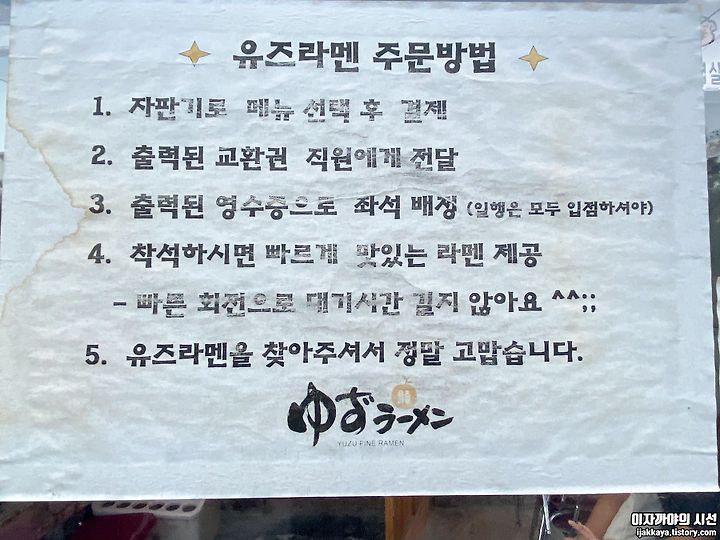 유즈라멘 주문방법
1. 자판기로 메뉴 선택 후 결제
2. 출력된 교환권 직원에게 전달
3. 출력된 영수증으로 좌석 배정 (일행은 모두 입점하셔야)
4. 착석하시면 빠르게 맛있는 라멘 제공
- 빠른 회전으로 대기시간 길지 않아요 ^^;;
5. 유즈라멘을 찾아주셔서 정말 고맙습니다.
ゆずラーメン
YUZU FINE RAMEN
이자까야의 시선
ijakkaya.tistory.com